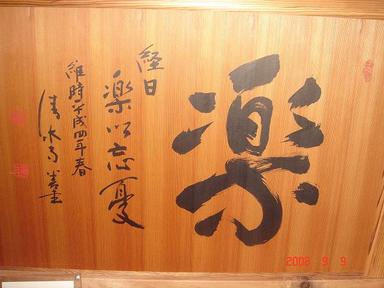 楽
経曰
楽以忘憂
維時平成四年春
清水
2008 9 9